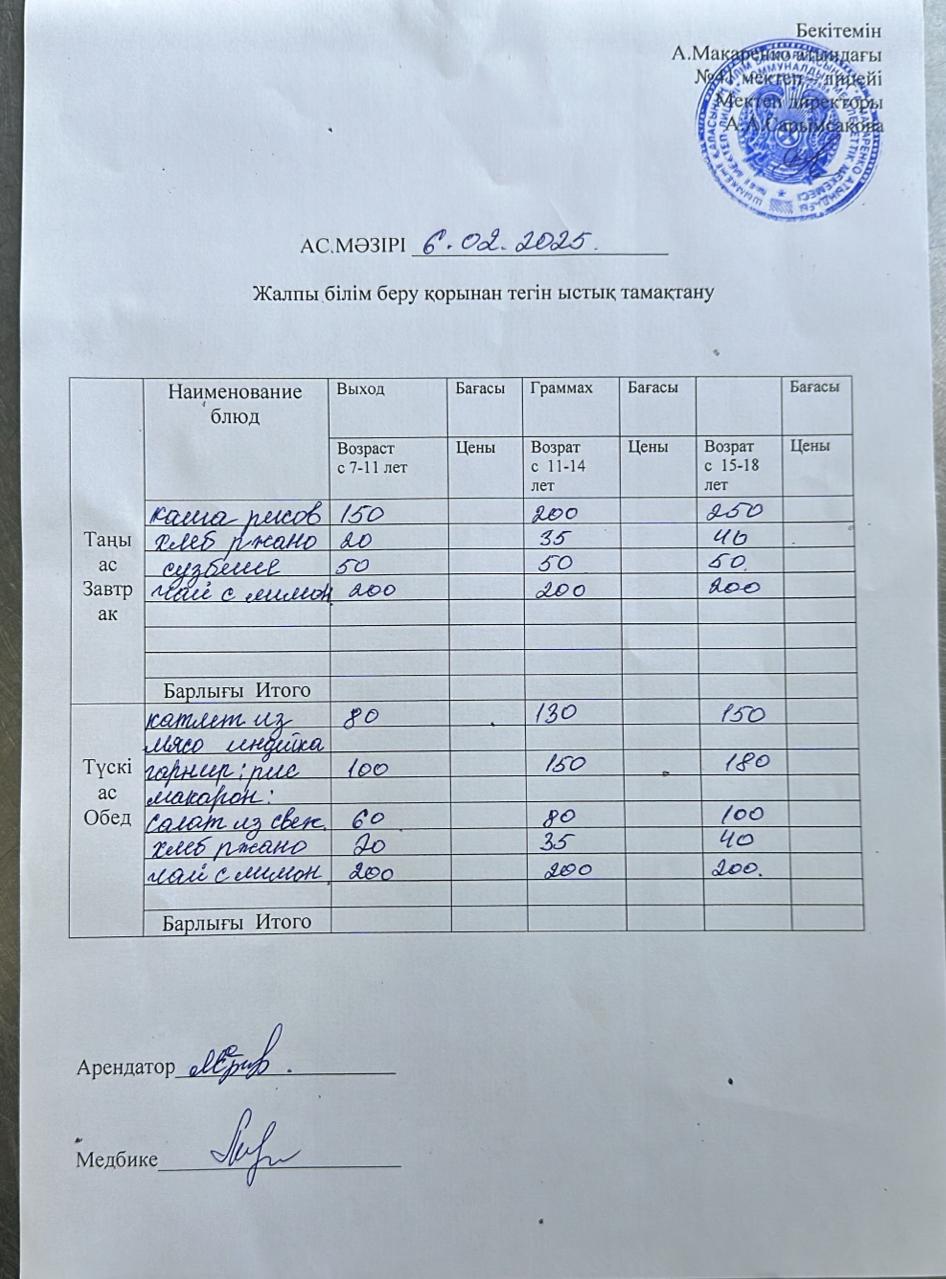 Бекітемін
А.Макаренко атындағы
№41 мектеп - лицейі
Мектеп директоры
А.А.Сарымсакова
АС.МӘЗІРІ 6.02.2025.
Жалпы білім беру қорынан тегін ыстық тамақтану
Наименование блюд Выход Бағасы Граммах Бағасы Бағасы
Возраст с 7-11 лет Цены Возрат с 11-14 лет Цены Возрат с 15-18 лет Цены
Таңы ас Завтр ак
каша рисов 150 200 250
хлеб ржано 20 35 40
сузбеше 50 50 50.
чай с лимон 200 200 200
Барлығы Итого
Түскі ас Обед
катлет из 80 130 150
мясо индейка
гарнир: рис 100 150 180
макарон:
салат из свеж. 60 80 100
хлеб ржано 20 35 40
чай с лимон 200 200 200.
Барлығы Итого
Арендатор
Медбике